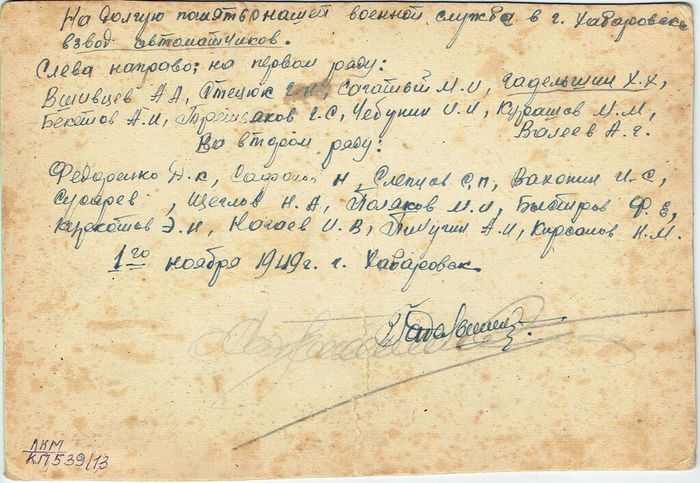 На долгую память нашей военной службы в г. Хабаровске
взвод автоматчиков.
Слева направо: на первом ряду:
Вшивцев А А, Птецюк Г Н, Согатый М И, Гадельшин Х.Х,
Бекетов А.И, Третьяков Г-С, Чебунин И.И, Курашов М.М,
Валеев А.Г.
Во втором ряду:
Федоренко Д.К, Сафонов Н, Слепцов С,П, Вахонин И-С,
Сусарев , Щеглов Н.А, Поляков М.И, Быстров Ф.Е,
Э.И, Ногаев И.В, Пичугин А.И, Кирсанов Н.М.
1го ноября 1949г. г. Хабаровск
ЛКМ
КП539/13